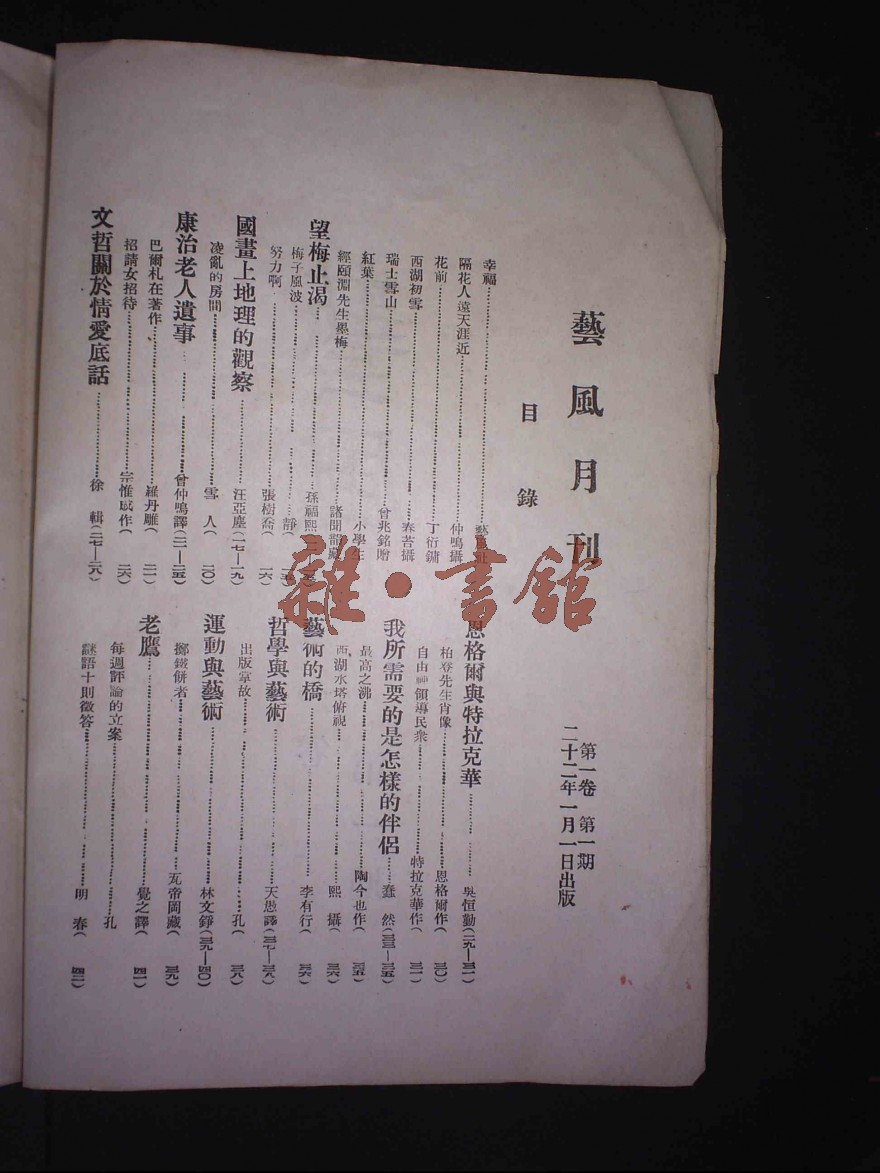 藝風月刊
第一卷 第一期
二十二年一月一日出版
目錄
幸福
隔花人遠天涯近 仲鳴攝
花前 丁衍鏞
西湖初雪 春苔攝
瑞士雪山 曾兆銘贈
紅葉 小學生
經頤淵先生墨梅 諸聞韻藏
望梅止渴 孫福熙
梅子風波 靜
努力啊 張樹喬( 一六)
國畫上地理的觀察 汪亞塵(一七—一九)
凌亂的房間 雪人( 二〇)
康治老人遺事 曾仲鳴譯(二一—二五)
巴爾札在著作 羅丹雕( 二一)
招請女招待 宗惟賡作( 二六)
文哲關於情愛底話 徐輯(二七—二八)
恩格爾與特拉克華 吳恒勤(二九—三一)
柏登先生肖像 恩格爾作( 三〇)
自由神領導民衆 特拉克華作( 三一)
我所需要的是怎樣的伴侶 蠢然(三三—三五)
最高之沸 陶今也作( 三五)
西湖水塔俯視 熙攝( 三六)
藝術的橋 李有行( 三六)
哲學與藝術 天愚譯(三七—三八)
出版掌故 孔( 三八)
運動與藝術 林文錚(三九—四〇)
擲鐵餅者 瓦帝岡藏( 三九)
老鷹 覺之譯( 四一)
每週評論的立案 孔
謎語十則徵答 明春( 四二)
雜·書館